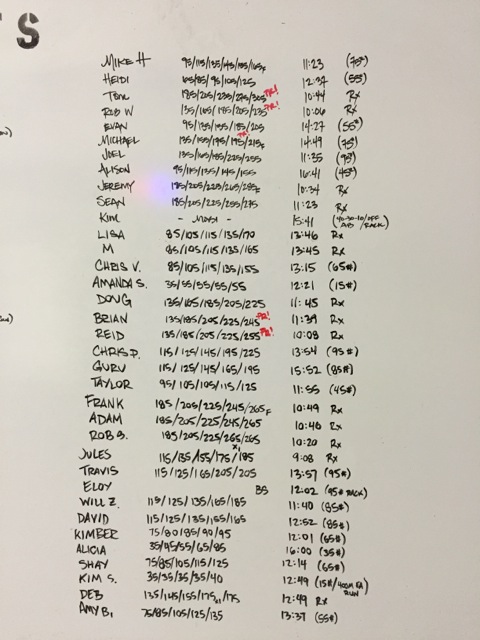 TS
MIKE H 95/115/135/145/155/165F 11:23 (75#)
HEIDI 65/85/95/105/125 12:37 (55)
TOM 185/205/235/275/305 PR! 10:44 Rx
ROB W 135/165/185/205/235 PR! 10:06 Rx
EVAN 95/135/155/185/205 14:27 (55#)
PR!
MICHAEL 135/155/175/195/215F 14:49 (75)
JOEL 135/165/185/225/255 11:35 (95)
ALISON 95/115/135/145/155 16:41 (45#)
JEREMY 185/205/225/265/285F 10:34 Rx
SEAN 185/205/225/255/275 11:23 Rx
KIM 15:41
LISA 85/105/115/135/170 13:46 Rx
M 85/105/115/135/165 13:45 Rx
CHRIS V. 85/105/115/135/155 13:15 (65#)
AMANDA S. 35/55/55/55/55 12:21 (15#)
DOUG 135/165/185/205/225 11:45 Rx
BRIAN 135/185/205/225/245 PR! 11:39 Rx
REID 135/185/205/225/255 PR! 10:08 Rx
CHRIS P. 115/125/145/195/225 13:54 (95#)
GURU 115/125/145/165/195 15:52 (85#)
TAYLOR 95/105/105/115/125 11:55 (45#)
FRANK 185/205/225/245/265F 10:49 Rx
ADAM 185/205/225/245/265 10:40 Rx
ROB S. 185/205/225/265/265 10:20 Rx
JULES 115/135/155/175/185 9:08 Rx
TRAVIS 115/125/165/205/205 13:57 (95#)
ELOY BS 12:02 (95# RACK)
WILL Z. 115/125/135/165/185 11:40 (85#)
DAVID 115/125/135/155/165 12:52 (85#)
KIMBER 75/80/85/90/95 12:01 (65#)
ALICIA 35/45/55/65/85 16:00 (35#)
SHAY 75/85/105/115/125 12:14 (65#)
KIM S. 35/35/35/35/40 12:49 (15#/400M RUN
DEB 135/145/155/175/175 12:49 Rx
AMY B. 75/85/105/125/135 13:37 (55#)